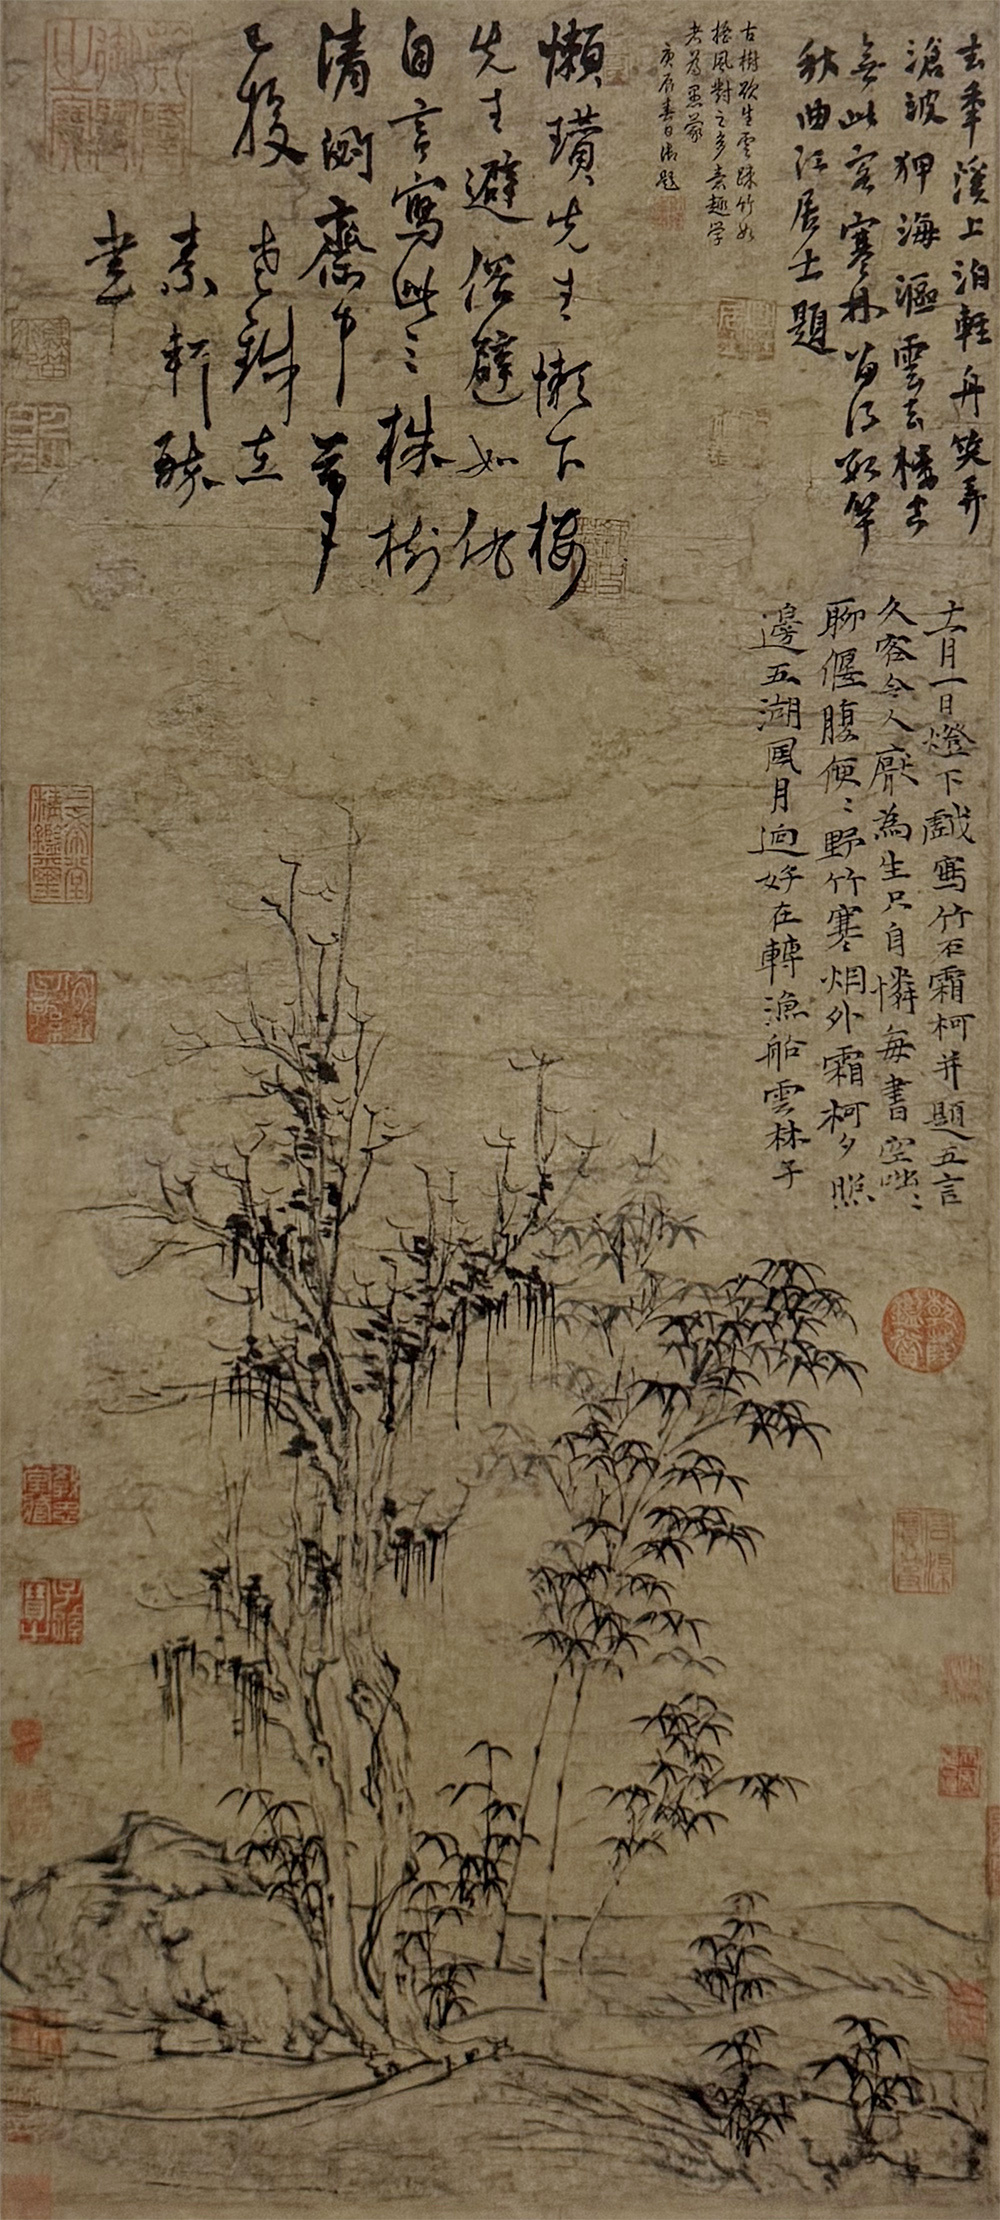 去年溪上泊輕舟笑弄
滄波狎海漚雲去樓空
無此客寒林留得數竿
秋曲江居士題
古樹欲生雲疎竹如
搖風對之多意趣学
者為愚蒙
庚辰春日御題
懶瓚先生懶下樓
先生避俗避如仇
自言寫此三株樹
清閟齋中筆
已投老鐵在
素軒醉
書
十一月一日燈下戲寫竹石霜柯并題五言
久客令人厭為生只自憐每書空咄〻
聊偃腹便〻野竹寒烟外霜柯夕照
邊五湖風月迥好在轉漁船雲林子